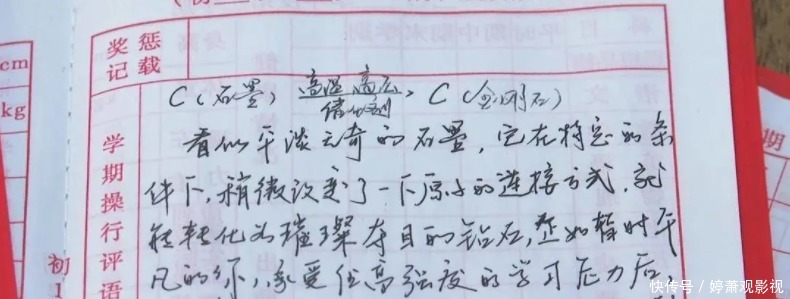 奖惩
记载
cm
kg
C(石墨) 高温 高压 催化剂 → C(金刚石)
看似平淡无奇的石墨，它在特定的条
件下，稍微改变了一下原子的连接方式，就
能转化为璀璨夺目的钻石，正如暂时平
凡的你，承受住高强度的学习压力后，
学期操行评语
初1
期
快传号/婷萧观影视